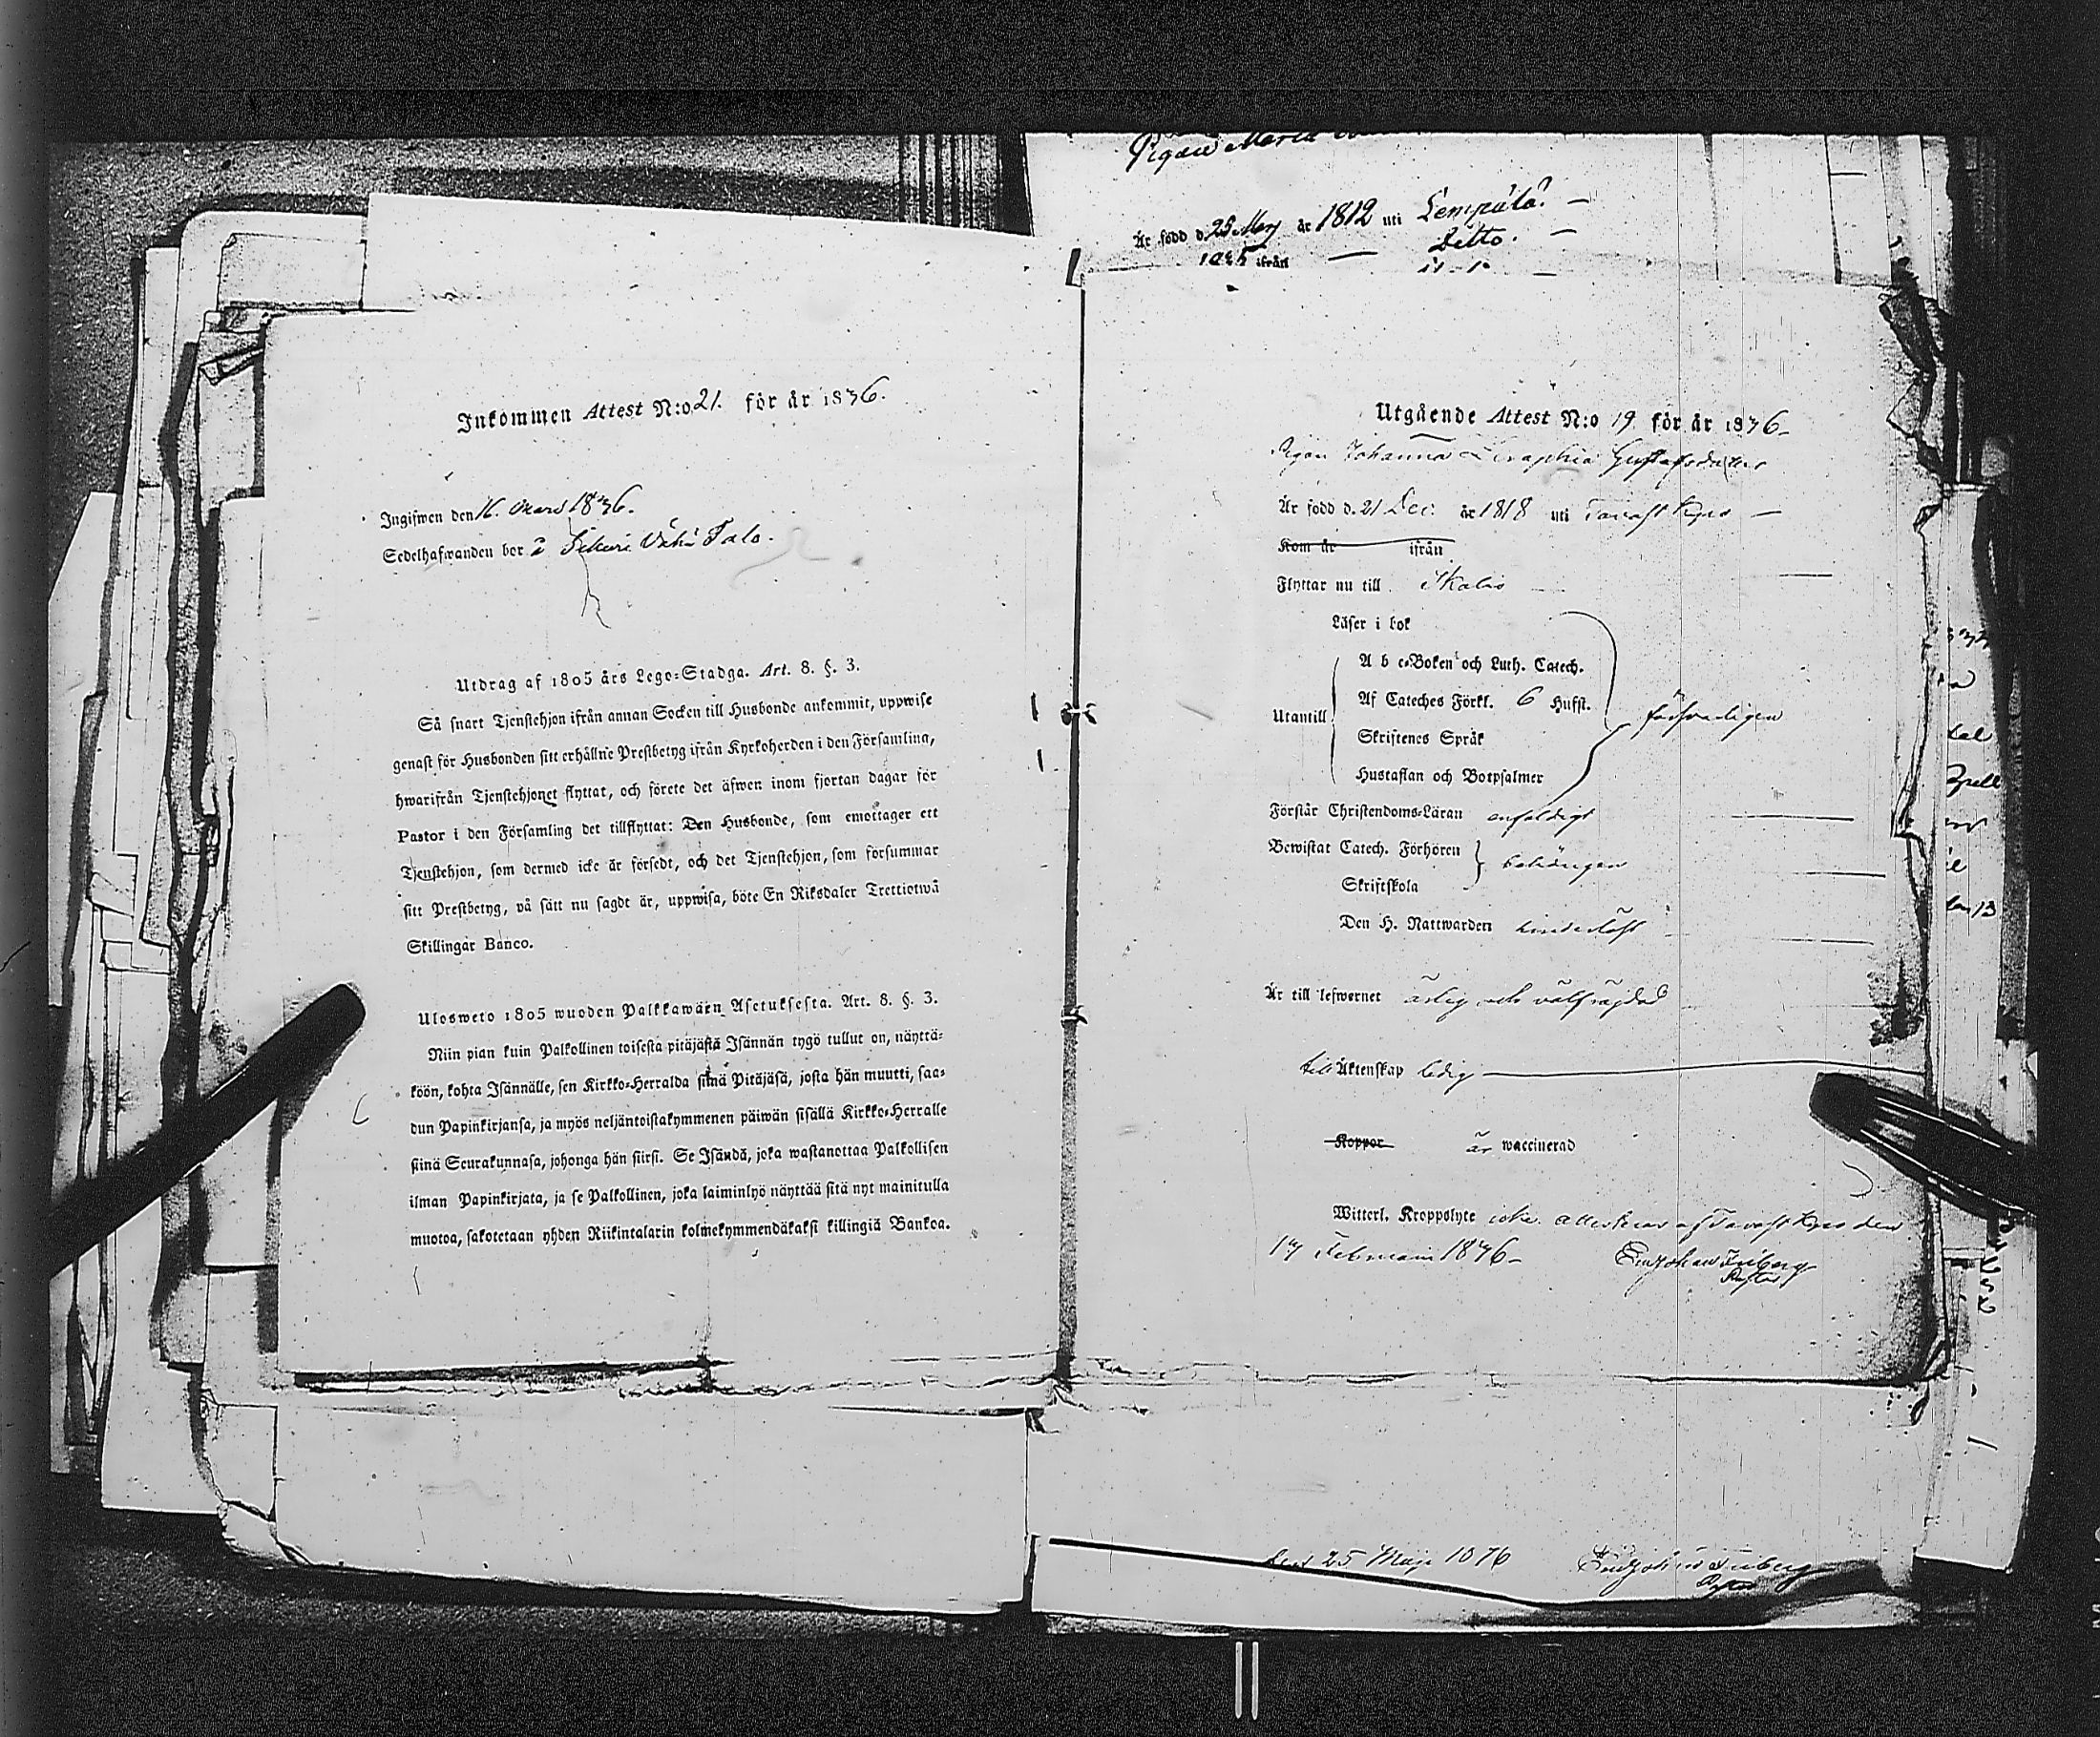 Inkommen Attest N:o 21. för år 1836.
Ingifwen den 16. Mars 1836.
Sedelhafwanden bor å Sikuri Vähä Talo.
Utdrag af 1805 års Lego-Stadga. Art. 8. §. 3.
Så snart Tjenstehjon ifrån annan Socken till Husbonde ankommit, uppwise
genast för Husbonden sitt erhållne Prestbetyg ifrån Kyrkoherden i den Församling,
hwarifrån Tjenstehjonet flyttat, och förete det äfwen inom fjortan dagar för
Pastor i den Församling det tillflyttat: Den Husbonde, som emottager ett
Tjenstehjon, som dermed icke är försedt, och det Tjenstehjon, som försummar
sitt Prestbetyg, på sätt nu sagdt är, uppwisa, böte En Riksdaler Trettiotwå
Skillingar Banco.
Ulosweto 1805 wuoden Palkkawäen Asetuksesta. Art. 8. §. 3.
Niin pian kuin Palkollinen toisesta pitäjästä Isännän tygö tullut on, näyttä-
köön, kohta Isännälle, sen Kirkko-Herralda siinä Pitäjäsä, josta hän muutti, saa-
dun Papinkirjansa, ja myös neljäntoistakymmenen päiwän sisällä Kirkko-Herralle
siinä Seurakunnasa, johonga hän siirsi. Se Isändä, joka wastanottaa Palkollisen
ilman Papinkirjata, ja se Palkollinen, joka laiminlyö näyttää sitä nyt mainitulla
muotoa, sakotetaan yhden Riikintalarin kolmekymmendäkaksi killingiä Bankoa.
Pigan Maria
Är född d. 25 May år 1812 uti Lempälä. —
Ditto. —
ifrån —
Utgående Attest N:o 19 för år 1836
Pigan Johanna Seraphia Gustafsdotter
Är född d. 21 Dec: år 1818 uti Tavast Kyro —
Kom år ifrån
Flyttar nu till Ikalis —
Läser i bok
A b c-Boken och Luth. Catech.
Af Cateches Förkl. 6 Hufst.
Utantill försvarligen
Skriftenes Språk
Hustaflan och Botpsalmer
Förstår Christendoms-Läran enfaldigt
Bewistat Catech. Förhören
behörigen
Skriftskola
Den H. Nattwarden
Är till lefwernet ärlig och välfrägdad
till Äktenskap ledig
Koppor är waccinerad
Witterl. Kroppslyte icke. attesteras af Tavast Kyro den
17 Februarii 1836
Pastor
den 25 Maji